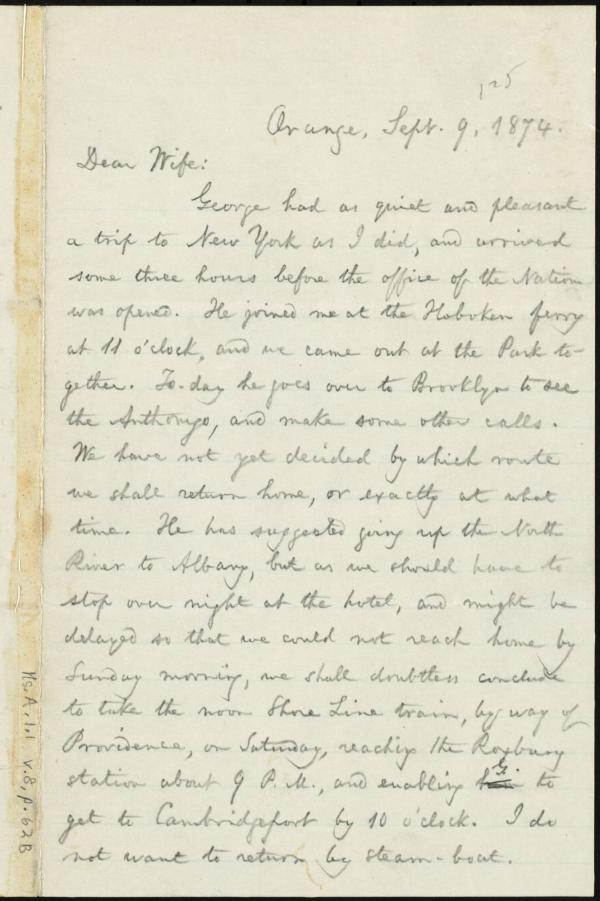 125
Orange, Sept. 9, 1874.
Dear Wife:
George had as quiet and pleasant
a trip to New York as I did, and arrived
some three hours before the office of the Nation
was opened. He joined me at the Hoboken ferry
at 11 o'clock, and we came out at the Park to-
gether. To-day he goes over to Brooklyn to see
the Anthonys, and make some other calls.
We have not yet decided by which route
we shall return home, or exactly at what
time. He has suggested going up the North
River to Albany, but as we should have to
stop over night at the hotel, and might be
delayed so that we could not reach home by
Sunday morning, we shall doubtless conclude
to take the noon Shore Line train, by way of
Providence, on Saturday, reaching the Roxbury
station about 9 P. M., and enabling G. to
get to Cambridgeport by 10 o'clock. I do
not want to return by steam-boat.
Ms. A. 1.1 v. 8, p. 62B